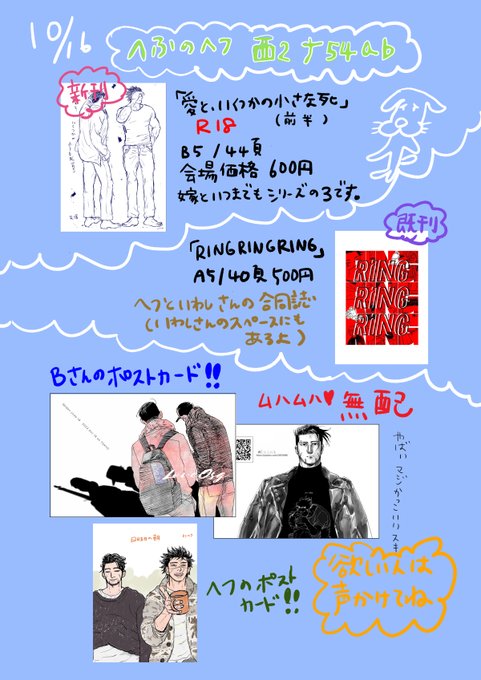 10/16
へふのヘフ 西2 ナ54ab
新刊
「愛と、いくつかの小さな死」
R18 (前半)
B5/44頁
会場価格 600円
嫁といつまでもシリーズの3です。
既刊
「RINGRINGRING」
A5/40頁 500円
RING
RING
RING
ヘフといわしさんの合同誌
(いわしさんのスペースにも
あるよ)
Bさんのポストカード!!
ムハムハ♥無配
やばい マジかっこいい スキ
ヘフのポスト
カード!!
欲しい人は
声かけてね